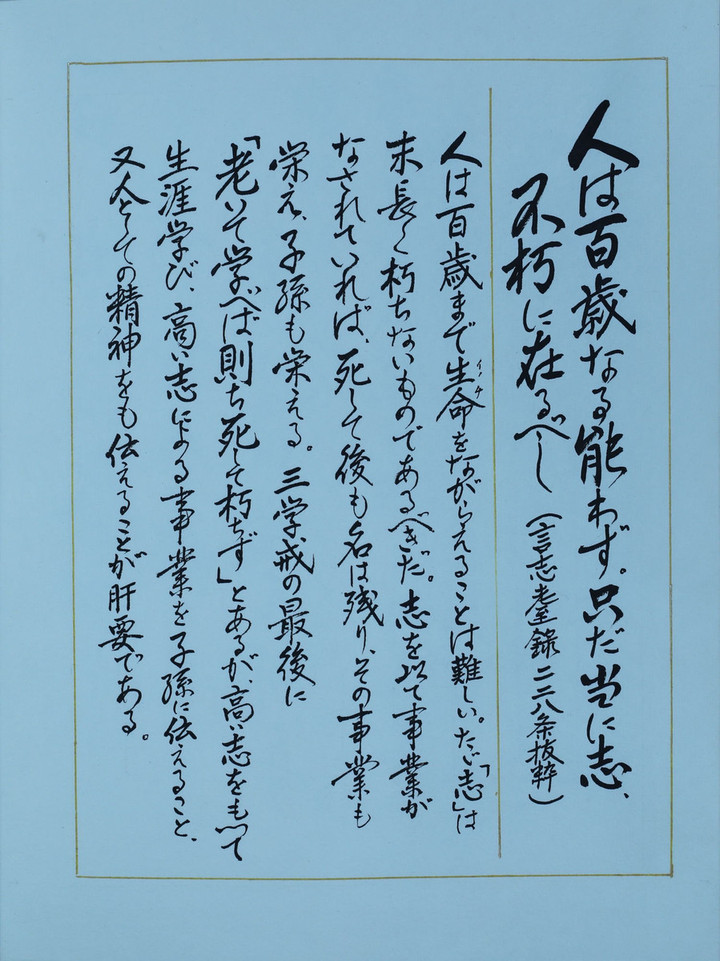 人は百歳なる能わず。只だ当に志、
不朽に在るべし（言志耋録二二八条抜粋）
人は百歳まで生命をながらえることは難しい。ただ「志」は
イノチ
末長く朽ちないものであるべきだ。志を以て事業が
なされていれば、死して後も名は残り、その事業も
栄え、子孫も栄える。三学戒の最後に
「老いて学べば則ち死して朽ちず」とあるが、高い志をもって
生涯学び、高い志による事業を子孫に伝えること、
又人としての精神をも伝えることが肝要である。